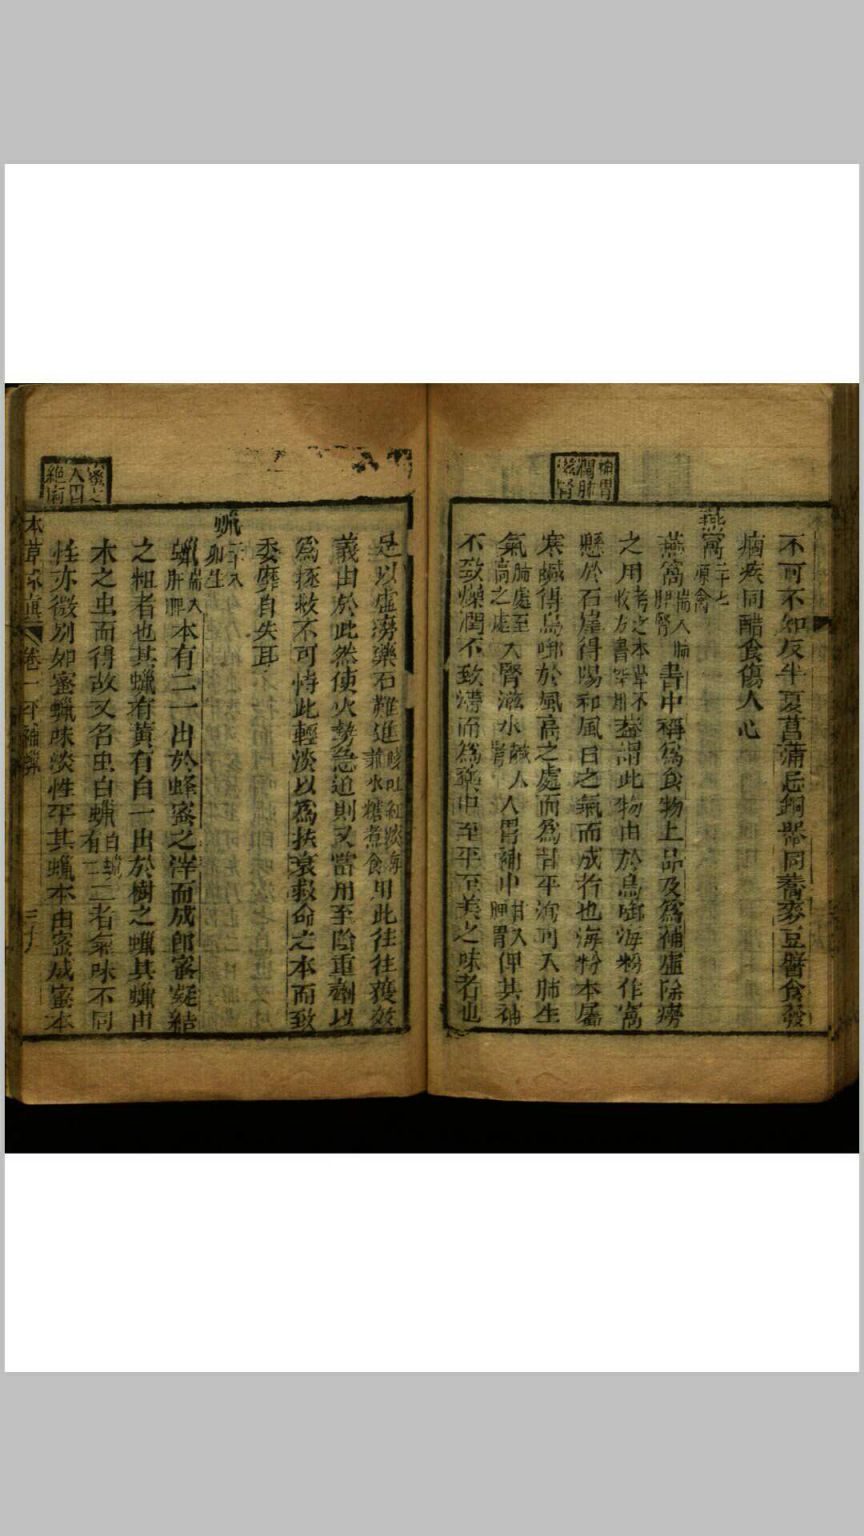 不可不知反半夏菖蒲忌銅器同蕎麥豆醬食發
痼疾同醋食傷人心
燕窩
原禽
燕窩
耑入肺
胃腎
書中稱為食物上品及為補虛除癆
之用
考之本草不
收方書罕用
益謂此物由於鳥啣海粉作窩
懸於石崖得陽和風日之氣而成者也海粉本屬
寒鹹得鳥啣於風高之處而為甘平淘可入肺生
氣
肺處至
高之處
入腎滋水
鹹入
腎
入胃補中
甘入
脾胃
俾其補
不致燥潤不致滯而為藥中至平至美之味者也
補胃
潤肺
滋腎
是以虛癆藥石難進
用此往往獲效
義由於此然使火勢急迫則又當用至陰重劑以
為拯救不可恃此輕淡以為扶衰救命之本而致
委靡自失耳
蠟
卵生
蠟
耑入
肝脾
本有二一出於蜂蜜之滓而成即蜜凝結
之粗者也其蠟有黃有白一出於樹之蠟其蠟由
木之虫而得故又名虫白蠟
白蠟
有二
二者氣味不同
性亦微別如蜜蠟味淡性平其蠟本由蜜成蜜本
本草求真
卷一
平補